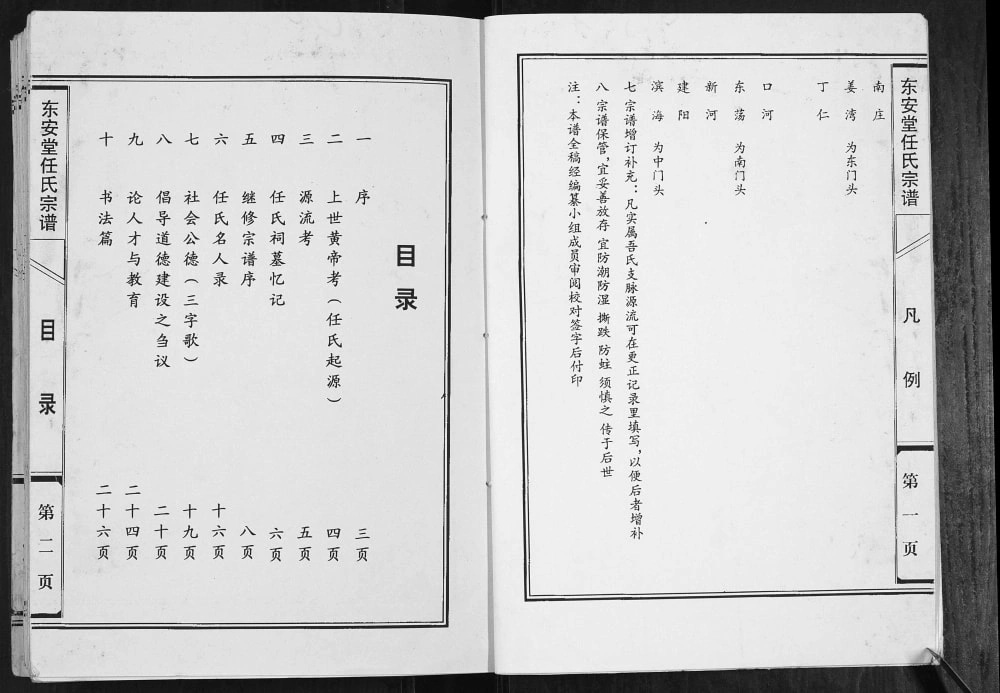 东安堂任氏宗谱
凡例
第一页
南庄
姜湾 为东门头
丁仁
口河
东荡 为南门头
新河
建阳
滨海 为中门头
七 宗谱增订补充：凡实属吾氏支脉源流可在更正记录里填写，以便后者增补
八 宗谱保管，宜妥善放存 宜防潮防湿 撕跌 防蛀 须慎之 传于后世
注：本谱全稿经编纂小组成员审阅校对签字后付印
目录
一 序 三页
二 上世黄帝考（任氏起源） 四页
三 源流考 五页
四 任氏祠墓忆记 六页
五 继修宗谱序 八页
六 任氏名人录 十六页
七 社会公德（三字歌） 十九页
八 倡导道德建设之刍议 二十页
九 论人才与教育 二十四页
十 书法篇 二十六页
东安堂任氏宗谱
目录
第二页